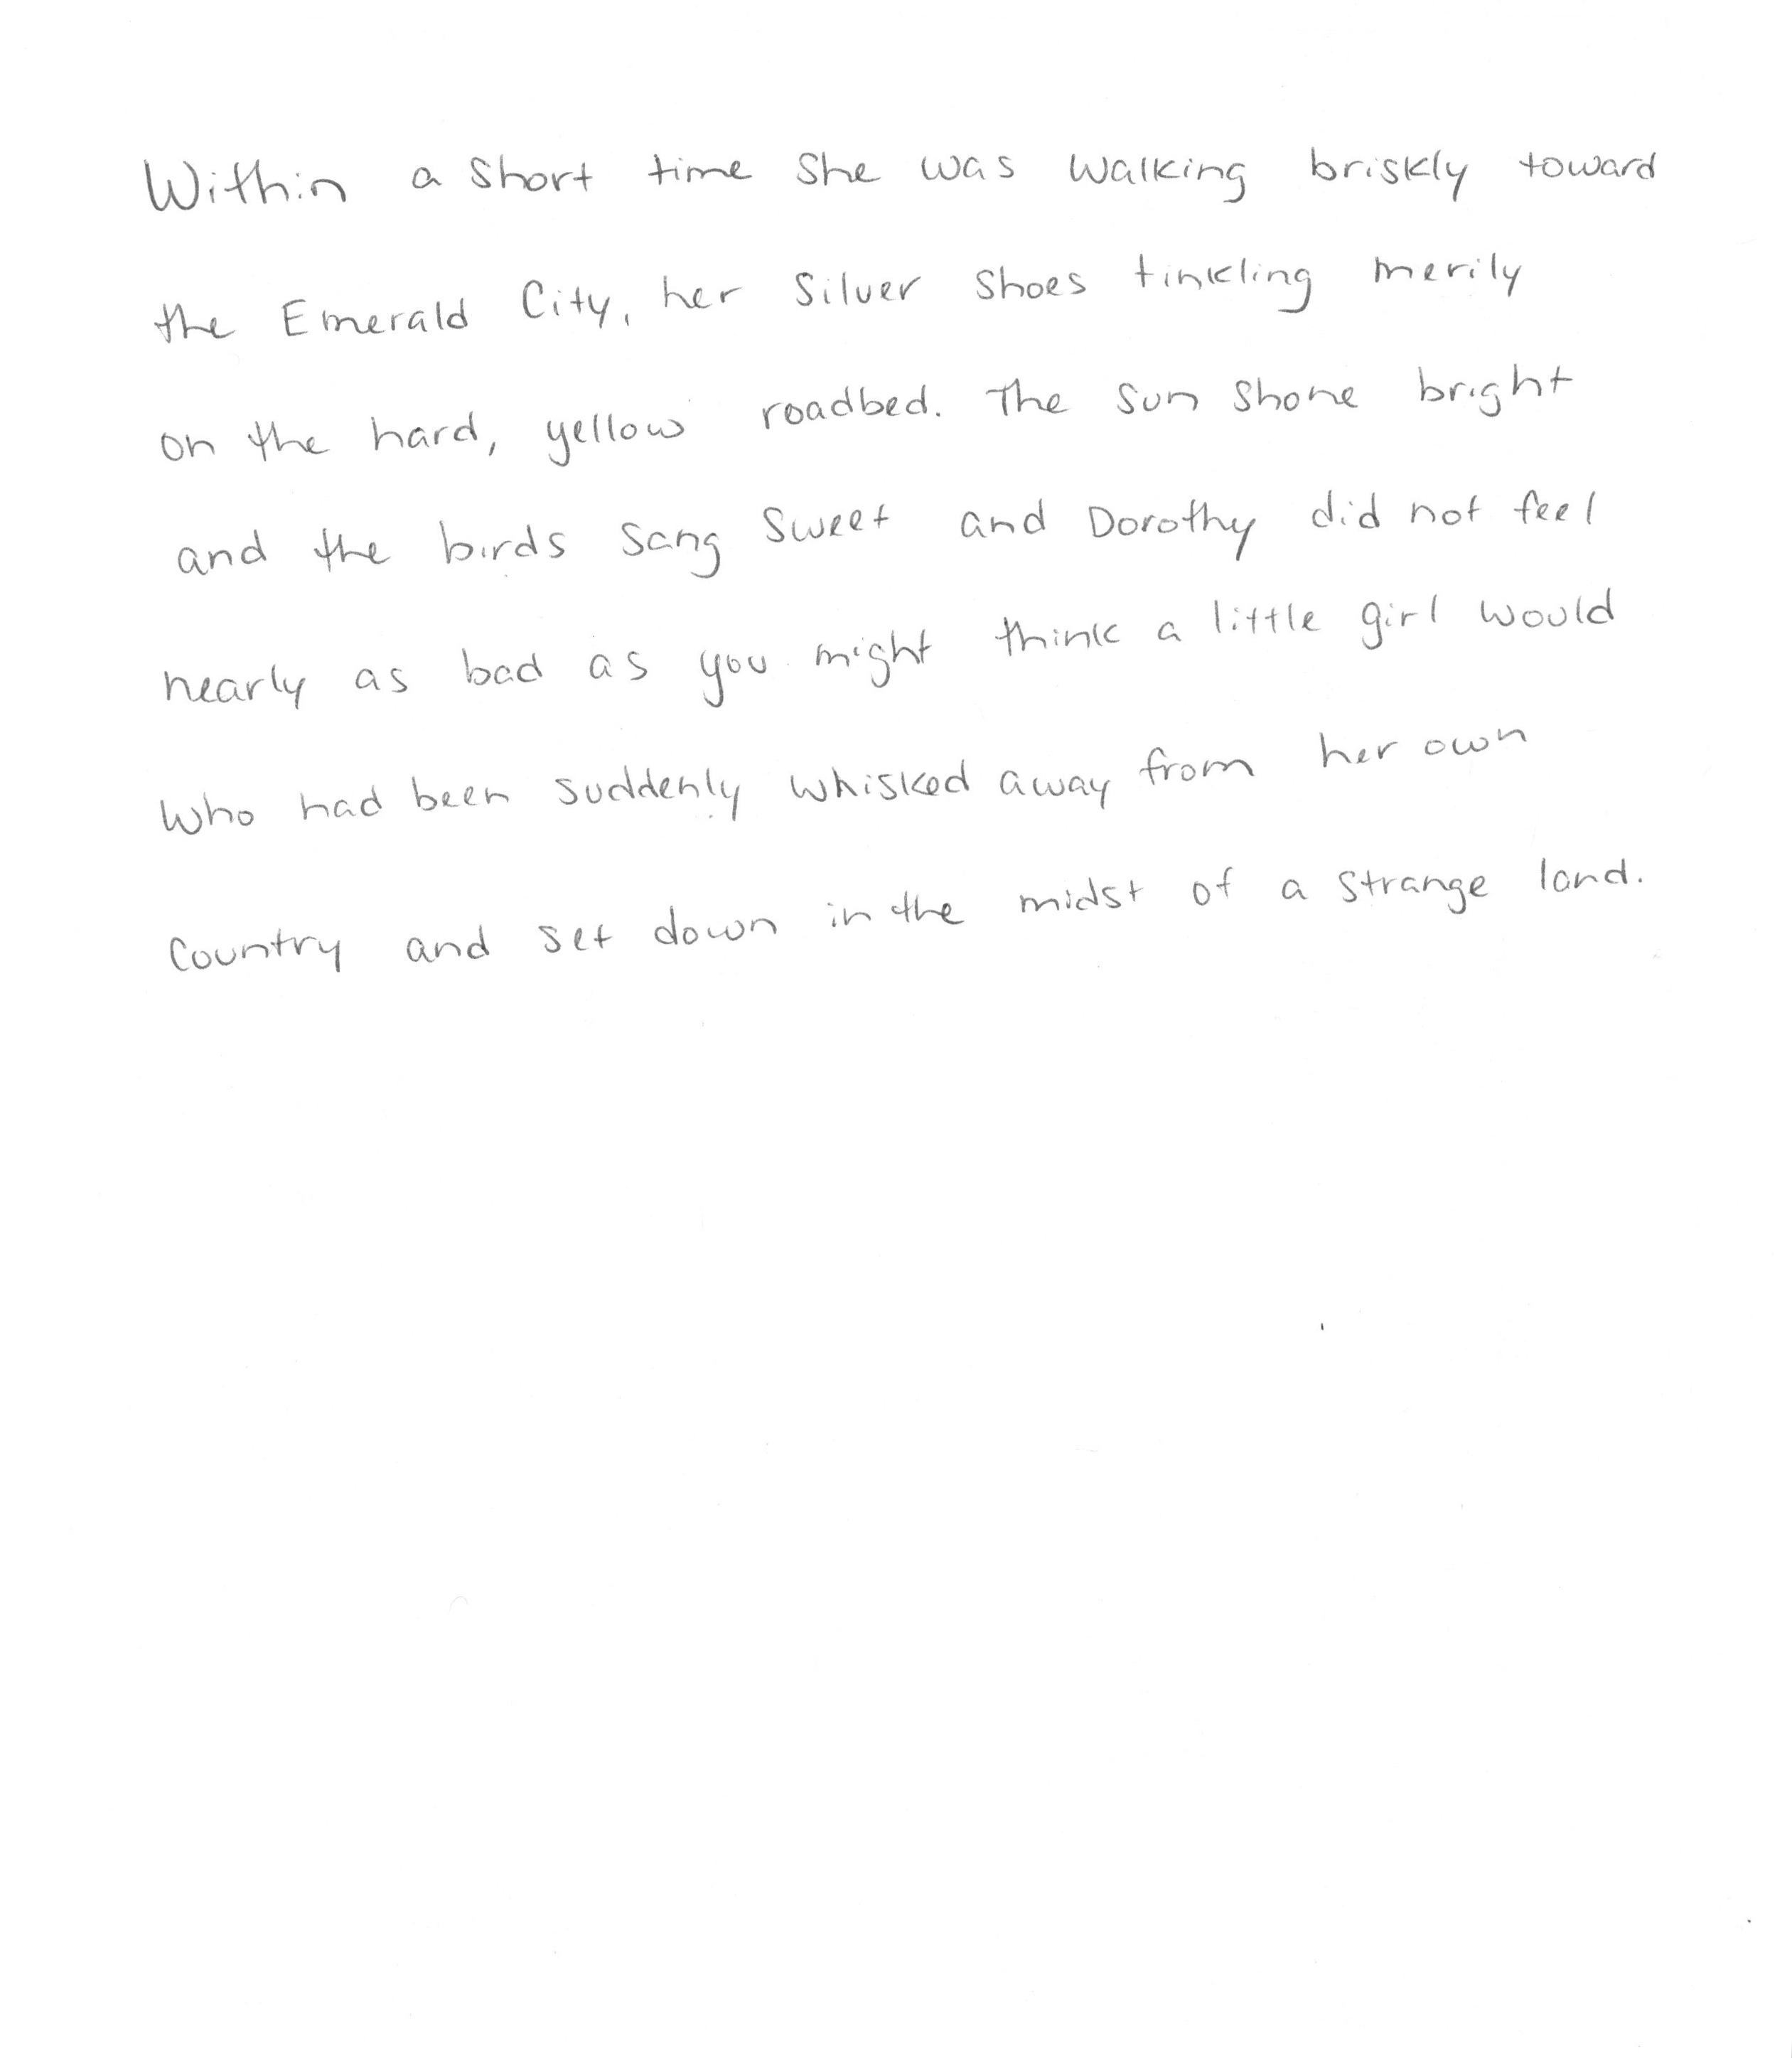 Within a short time she was walking briskly toward
the Emerald City, her Silver Shoes tinkling merily
on the hard, yellow roadbed. The sun shone bright
and the birds sang sweet and Dorothy did not feel
nearly as bad as you might think a little girl would
who had been suddenly whisked away from her own
country and set down in the midst of a strange land.